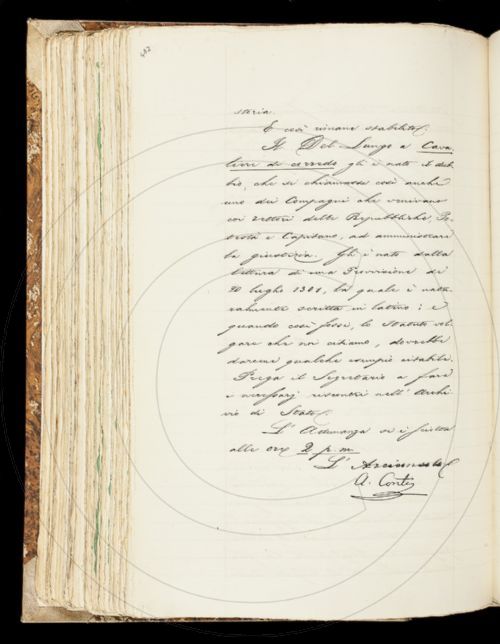 482
storia.
E così rimane stabilito.
Il Del-Lungo a Cava-
lieri di corredo gli è nato il dub-
bio, che si chiamasse così anche
uno dei Compagni che venivano
coi Rettori delle Repubbliche, Po-
testà e Capitano, ad amministrare
la giustizia. Gli è nato dalla
lettura di una Provvisione di
20 luglio 1301, la quale è natu-
ralmente scritta in latino; e
quando così fosse, lo Statuto vol-
gare che noi citiamo, dovrebbe
darcene qualche esempio citabile.
Prega il Segretario a fare
i necessarj riscontri nell'Archi-
vio di Stato.
L'Adunanza si è sciolta
alle ore 2 p. m.
L'Arciconsolo
A. Conti